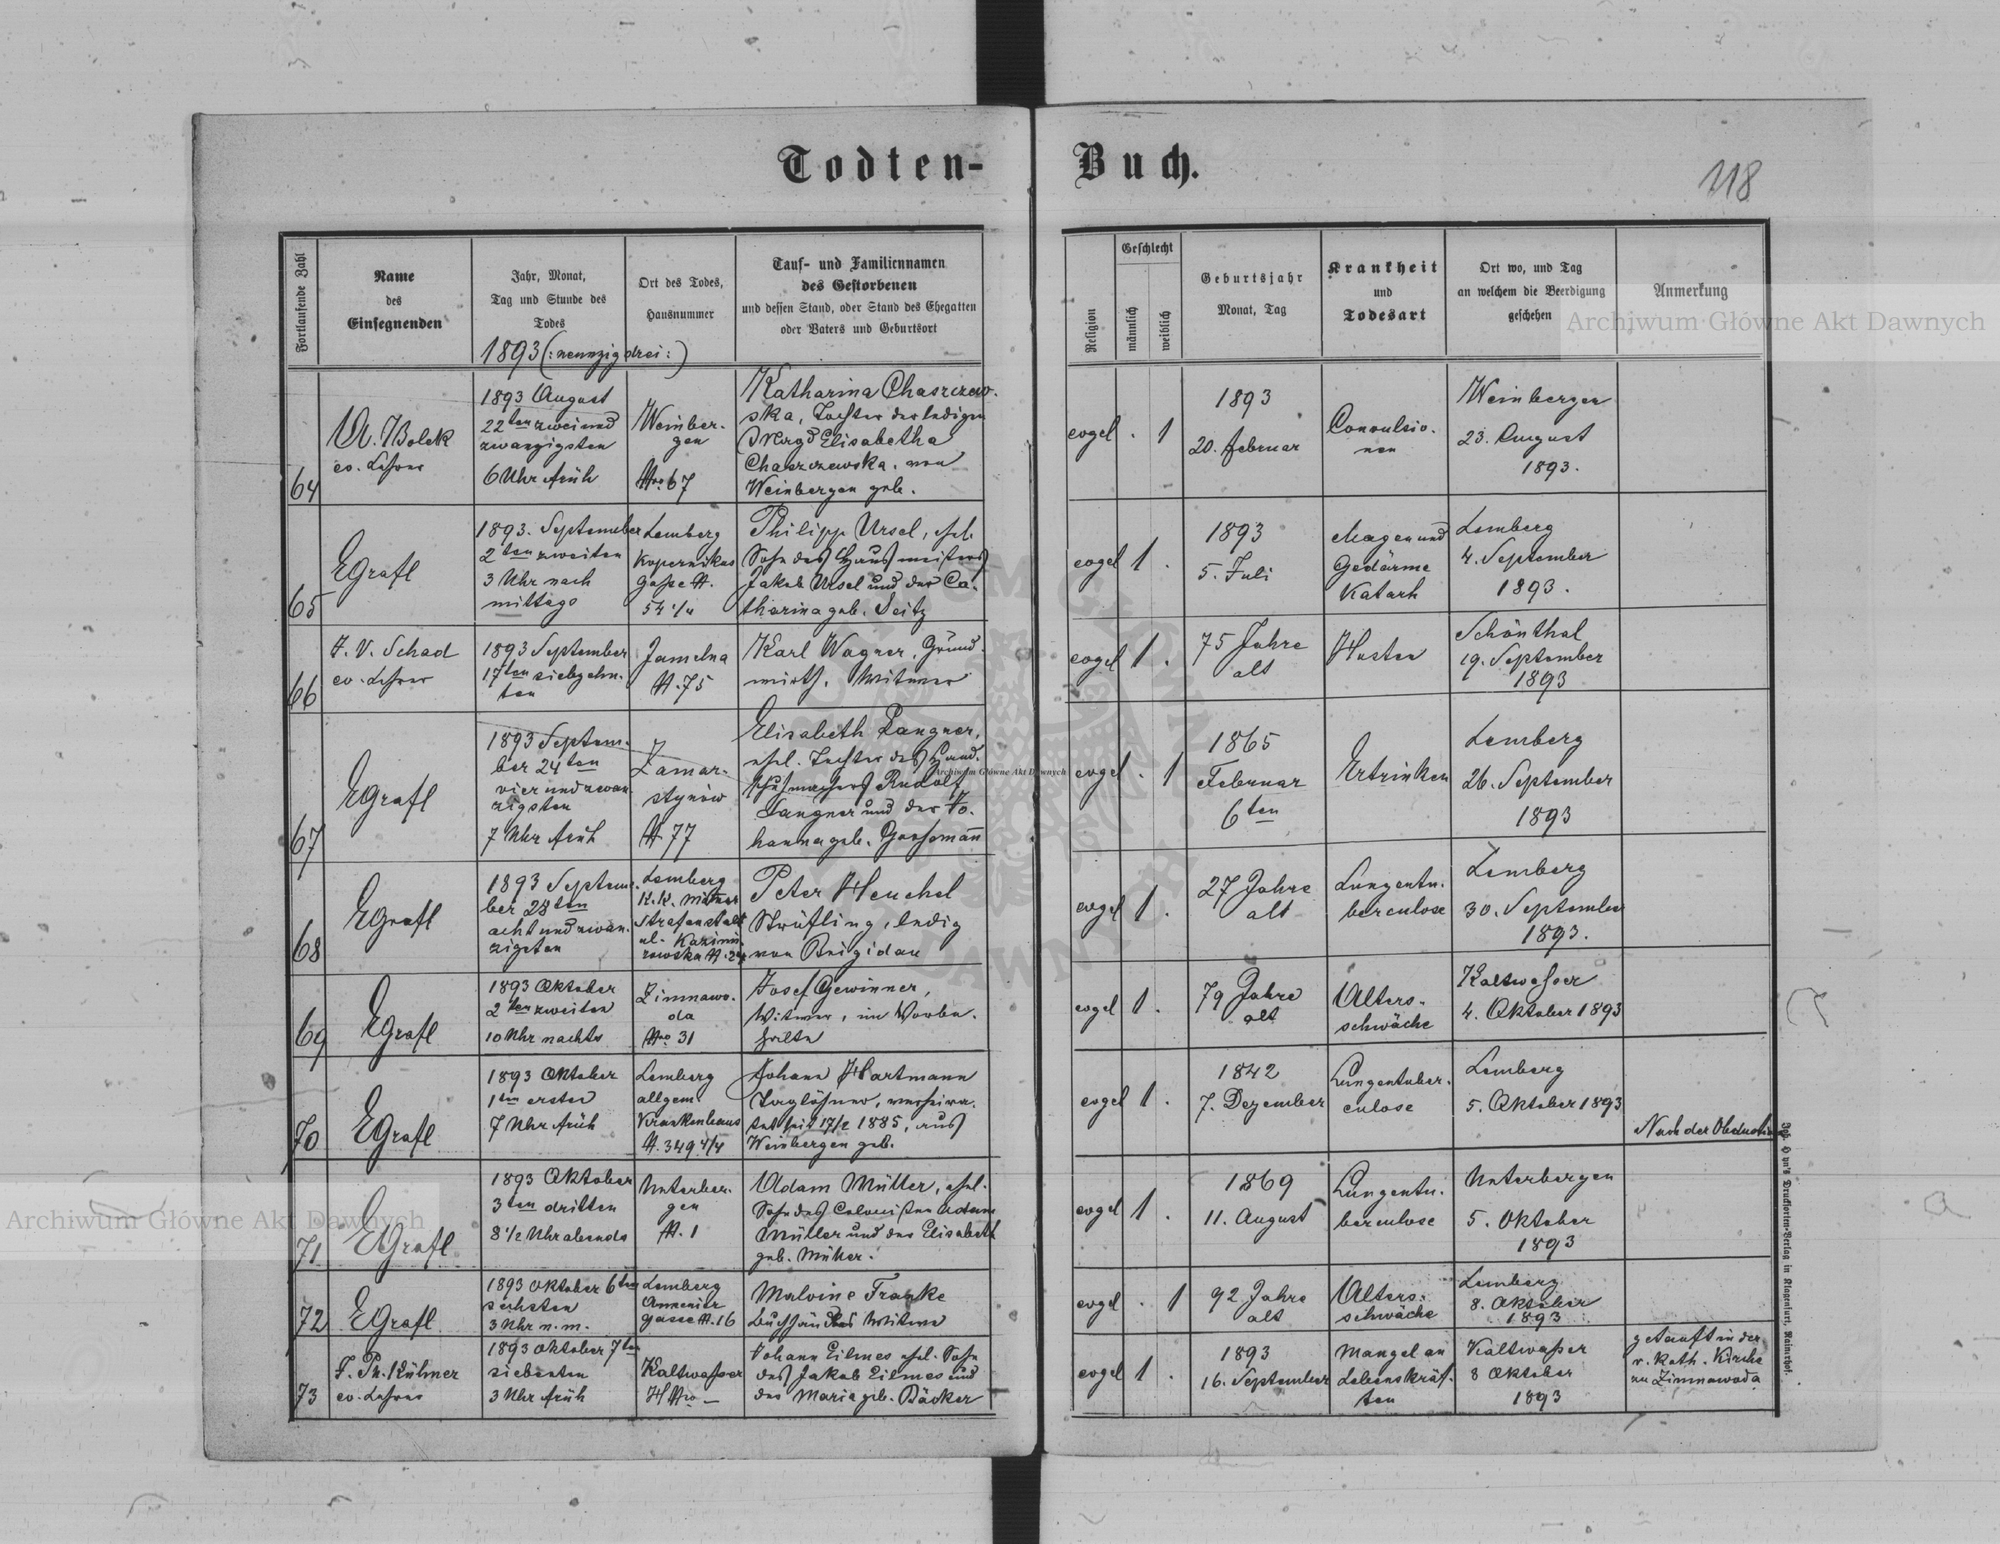 Todten-Buch.
118
Fortlaufende Zahl
Name
des
Einsegnenden
Jahr, Monat,
Tag und Stunde des
Todes
1893 (:neunzigdrei:)
Ort des Todes,
Hausnummer
Tauf- und Familiennamen
des Gestorbenen
und dessen Stand, oder Stand des Ehegatten
oder Vaters und Geburtsort
Religion
Geschlecht
männlich
weiblich
Geburtsjahr
Monat, Tag
Krankheit
und
Todesart
Ort wo, und Tag
an welchem die Beerdigung
geschehen
Anmerkung
64
A. Bolek
ev. Lehrer
1893 August
22ten zweiund
zwanzigsten
6 Uhr früh
Weinber-
gen
Nro 67
Katharina Chaszczew-
ska, Tochter der ledigen
Magd Elisabetha
Chaszczewska, von
Weinbergen geb.
evgel . 1
1893
20. Februar
Convulsio-
nen
Weinbergen
23. August
1893.
65
EGrafl
1893. September
2ten zweiten
3 Uhr nach
mittags
Lemberg
Kopernikus
gasse N.
54 1/4
Philipp Ursel, ehel.
Sohn des Hausmeisters
Jakob Ursel und der Ca-
tharina geb. Seitz
evgel 1 .
1893
5. Juli
Magen und
Gedärme
Katarh
Lemberg
4. September
1893.
66
J. V. Schad
ev. Lehrer
1893 September
17ten siebzehn-
ten
Jamelna
N. 75
Karl Wagner, Grund-
wirth, Witwer
evgel 1 .
75 Jahre
alt
Husten
Schönthal
19. September
1893
67
EGrafl
1893 Septem-
ber 24ten
vierundzwan-
zigsten
7 Uhr früh
Zamar-
stynów
N. 77
Elisabeth Langner,
ehel. Tochter des Hand-
schuhmachers Rudolf
Langner und der Jo-
hanna geb.
evgel . 1
1865
Februar
6ten
Ertrinken
Lemberg
26. September
1893
68
EGrafl
1893 Septem-
ber 28ten
achtundzwan-
zigsten
Lemberg
K. K. Männer
Strafanstalt
ul. Kazimi-
rowska N. 24
Peter Heuchel
Sträfling, ledig
von Brigidau
evgel 1 .
27 Jahre
alt
Lungentu-
berculose
Lemberg
30. September
1893.
69
EGrafl
1893 Oktober
2ten zweiten
10 Uhr nachts
Zimnawo-
da
Nro 31
Josef Gewinner,
Witwer, im Vorbe-
halte
evgel 1 .
79 Jahre
alt
Alters-
schwäche
Kaltwasser
4. Oktober 1893
70
EGrafl
1893 Oktober
1ten ersten
7 Uhr früh
Lemberg
allgem
Krankenhaus
N. 349 4/4
Johann Hartmann
Taglöhner, verheira-
tet seit 17/2 1885, aus
Weinbergen geb.
evgel 1 .
1842
7. Dezember
Lungentuber-
culose
Lemberg
5. Oktober 1893
Nach der Obduktion
71
EGrafl
1893 Oktober
3ten dritten
8 1/2 Uhr abends
Unterber-
gen
N. 1
Adam Müller, ehel.
Sohn des Colonisten Adam
Müller und der Elisabeth
geb. Müller.
evgel 1 .
1869
11. August
Lungentu-
berculose
Unterbergen
5. Oktober
1893
72
EGrafl
1893 Oktober 6ten
sechsten
3 Uhr n. m.
Lemberg
gasse N. 16
Malvine Franke
Buchhändlers Witwe
evgel . 1
92 Jahre
alt
Alters-
schwäche
Lemberg
8. Oktober
1893
73
J. Ph. Kühner
ev. Lehrer
1893 Oktober 7ten
siebenten
3 Uhr früh
Kaltwasser
H Nro —
Johann Eilmes ehel. Sohn
des Jakob Eilmes und
der Maria geb. Bäcker
evgel 1 .
1893
16. September
Mangel an
Lebenskräf-
ten
Kaltwasser
8 Oktober
1893
getauft in der
r. kath. Kirche
zu Zimnawoda
Archiwum Główne Akt Dawnych
Archiwum Główne Akt Dawnych
Archiwum Główne Akt Dawnych